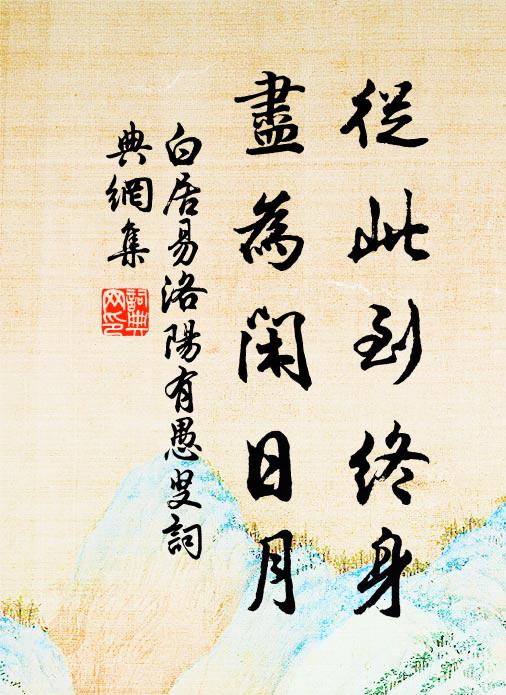 從此到終身
盡為閑日月
白居易洛陽有愚叟詞
典網集
詞典
网印